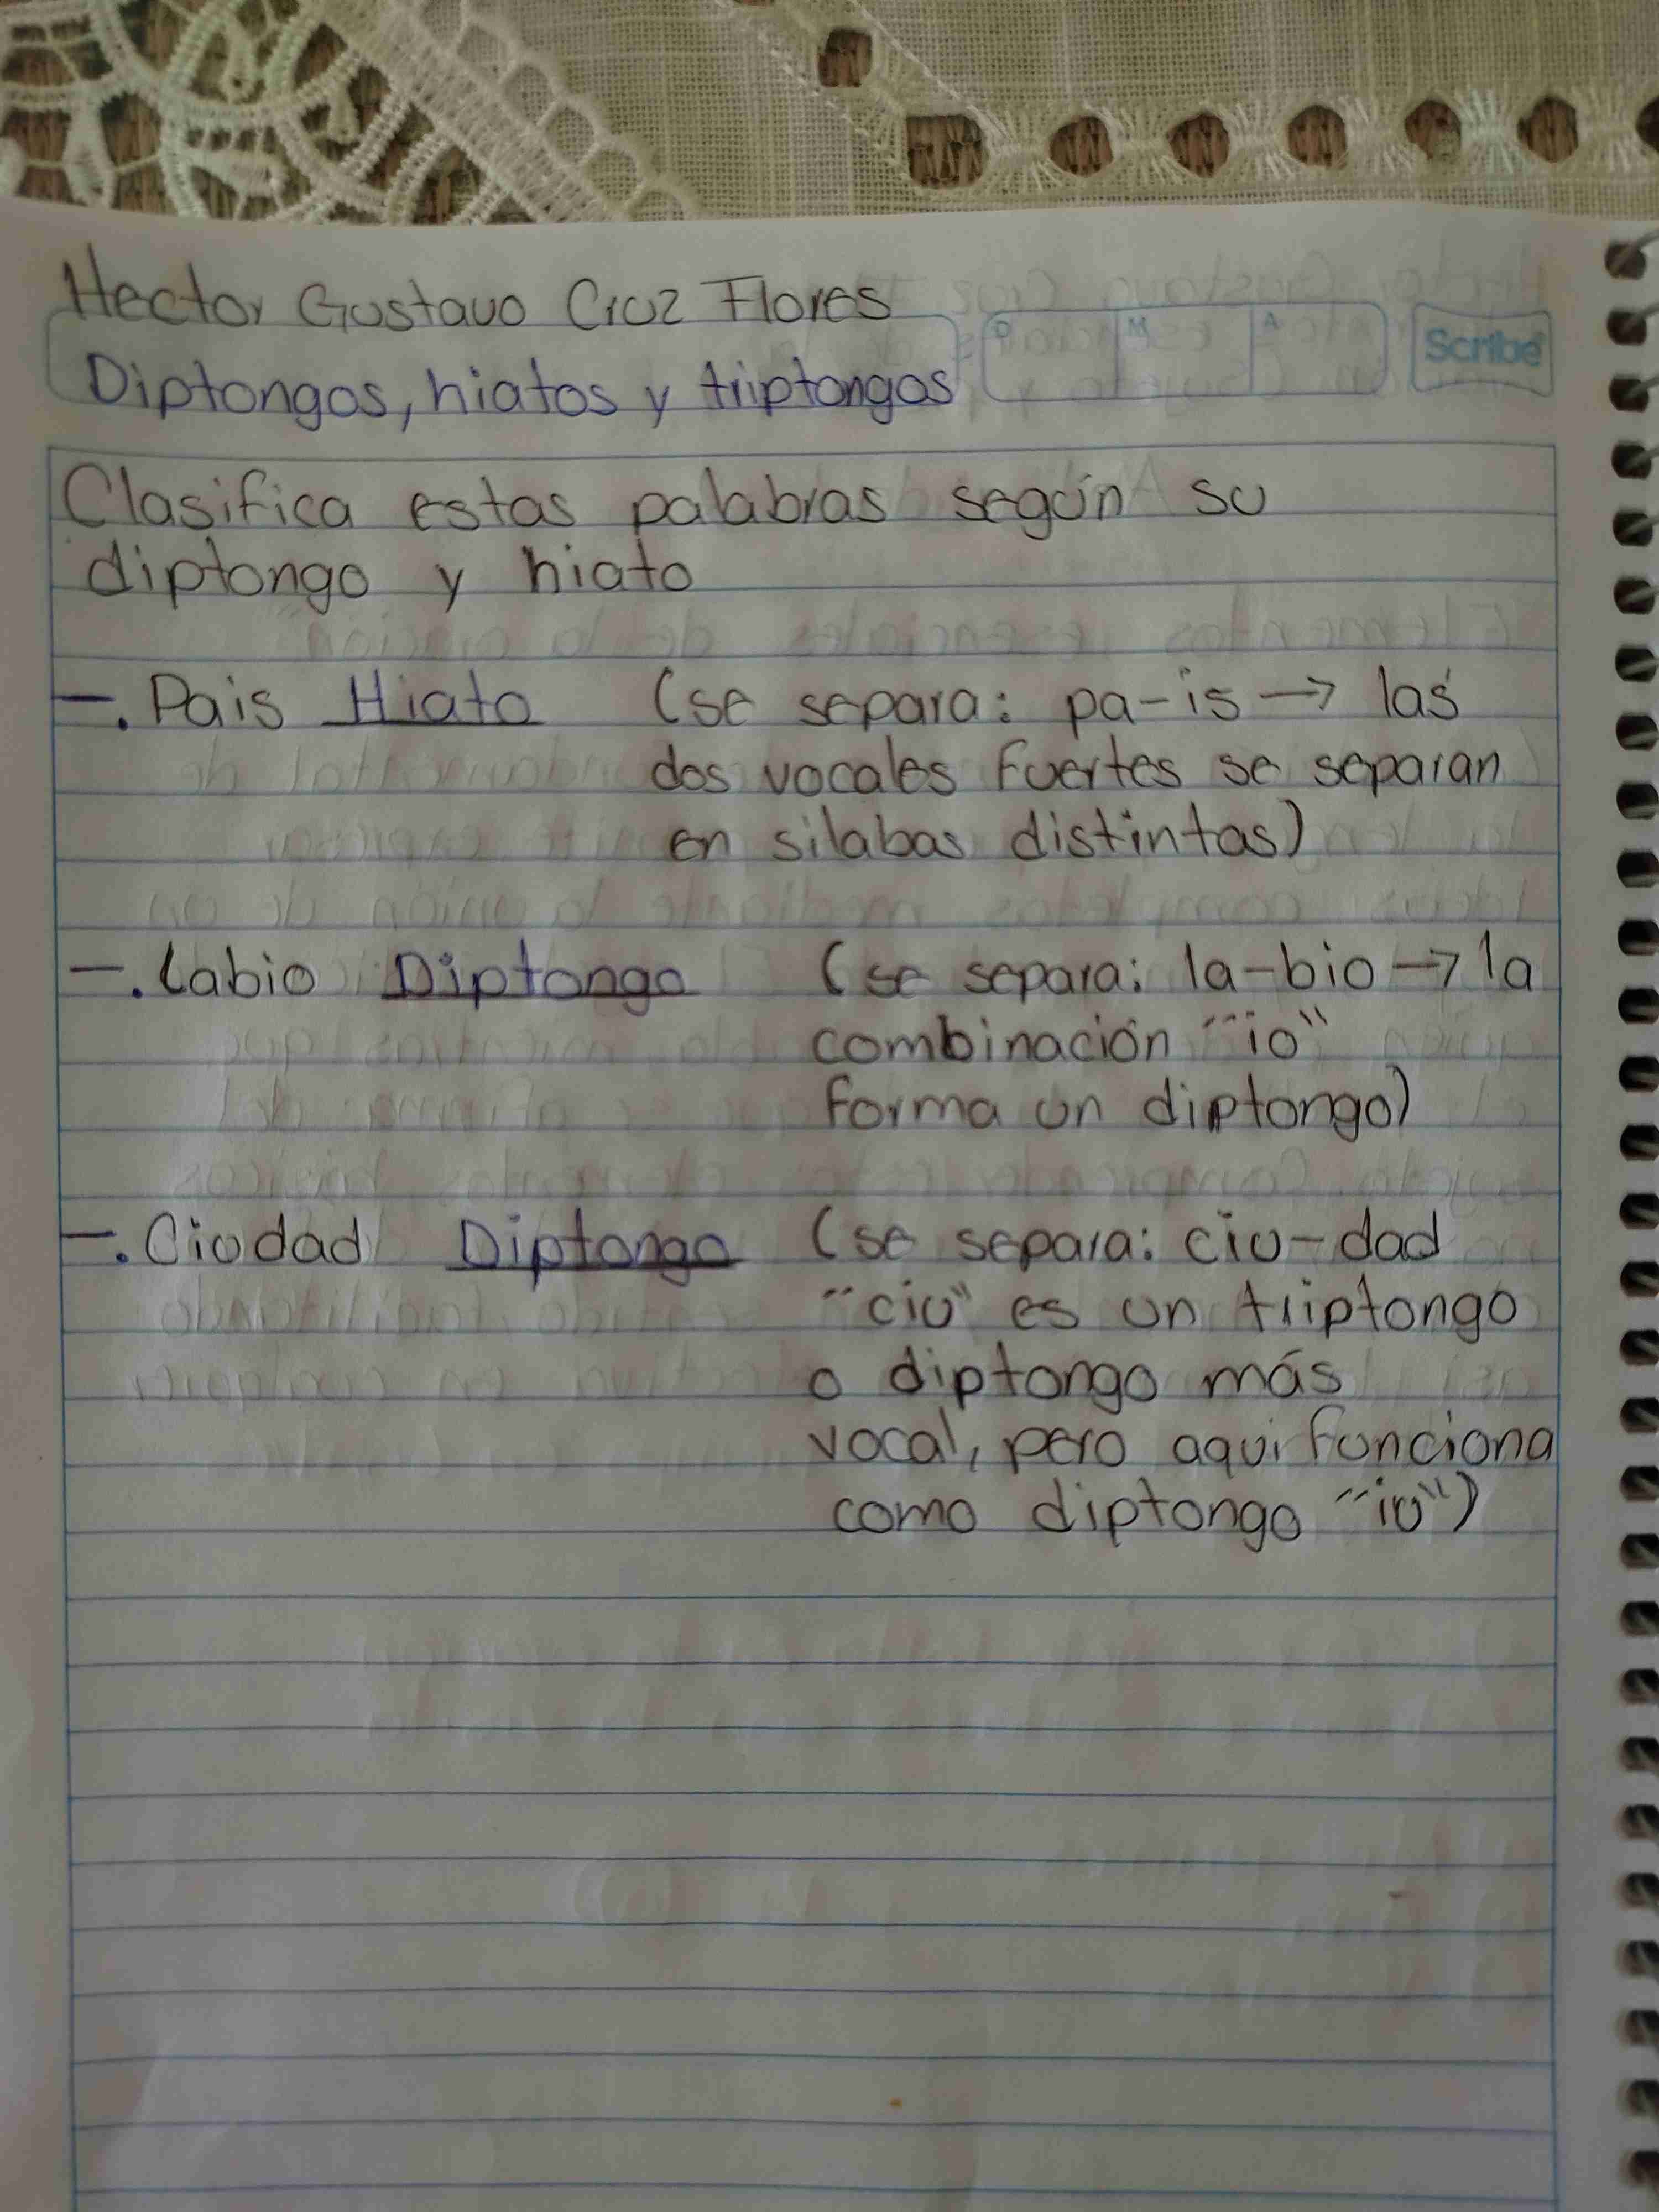 Hector Gustavo Cruz Flores
D M A Scribe
Diptongos, hiatos y triptongos
Clasifica estas palabras según su
diptongo y hiato
-. Pais Hiato (se separa: pa-is → las
dos vocales fuertes se separan
en silabas distintas)
-. Labio Diptongo (se separa: la-bio → la
combinación "io"
forma un diptongo)
-. Ciudad Diptongo (se separa: ciu-dad
"ciu" es un triptongo
o diptongo más
vocal, pero aqui funciona
como diptongo "iu")